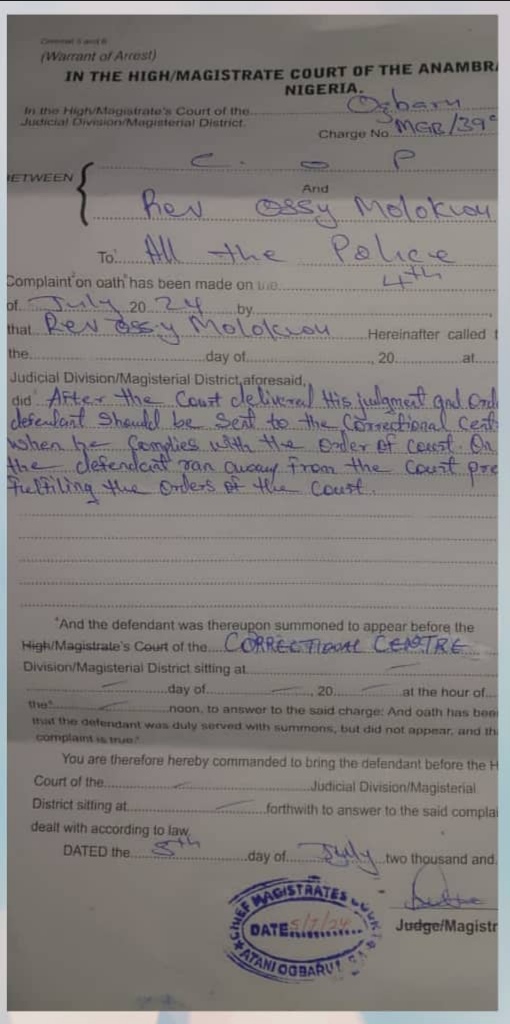 (Warrant of Arrest)
IN THE HIGH/MAGISTRATE COURT OF THE ANAMBRA
NIGERIA.
In the High/Magistrate's Court of the Ogbaru
Judicial Division/Magisterial District.
Charge No MGB/39
C. O P
BETWEEN
And
Rev Ossy Molokwu
To: All the Police
Complaint on oath has been made on the 4th
of July 20 24 by
that Rev Ossy Molokwu Hereinafter called
the day of , 20 at
Judicial Division/Magisterial District, aforesaid,
did After the Court delivered His judgment and
defendant should be sent to the Correctional
when he Complies with the Order of Court.
the defendant ran away from the Court
fulfiling the Orders of the Court.
And the defendant was thereupon summoned to appear before the
High/Magistrate's Court of the CORRECTIONAL CENTRE
Division/Magisterial District sitting at
day of , 20 at the hour of
the noon, to answer to the said charge: And oath has been
that the defendant was duly served with summons, but did not appear, and
complaint is true.
You are therefore hereby commanded to bring the defendant before the H
Court of the Judicial Division/Magisterial
District sitting at forthwith to answer to the said
dealt with according to law.
DATED the 5th day of July two thousand and
CHIEF MAGISTRATES COURT
DATE 5/7/24
ATANI OGBARU
Judge/Magistr